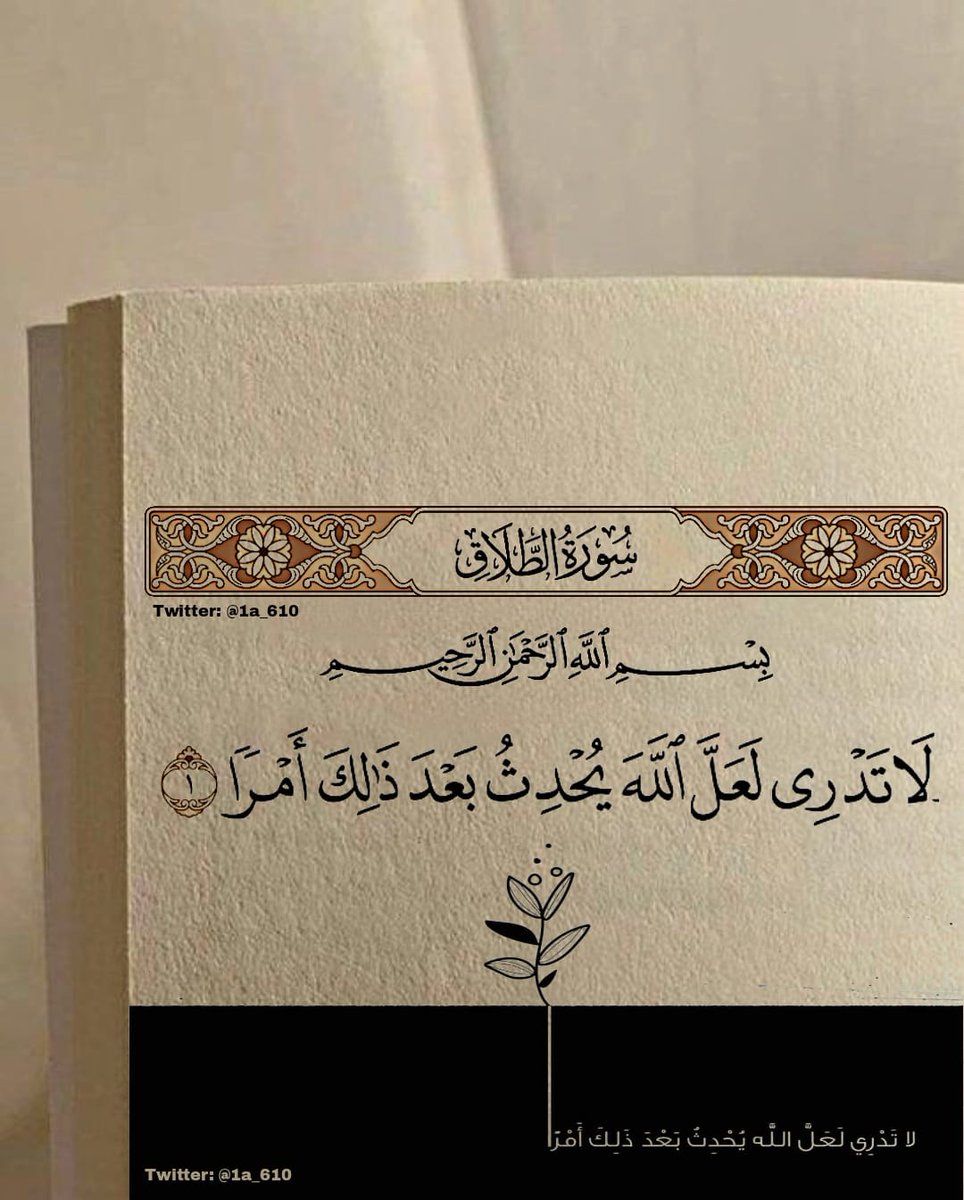 سُورَةُ الطَّلَاقِ
Twitter: @1a_610
بِسْمِ ٱللَّهِ ٱلرَّحْمَٰنِ ٱلرَّحِيمِ
لَا تَدْرِى لَعَلَّ ٱللَّهَ يُحْدِثُ بَعْدَ ذَٰلِكَ أَمْرًا ١
لا تَدْرِي لَعَلَّ اللَّه يُحْدِثُ بَعْدَ ذَلِكَ أَمْرًا
Twitter: @1a_610